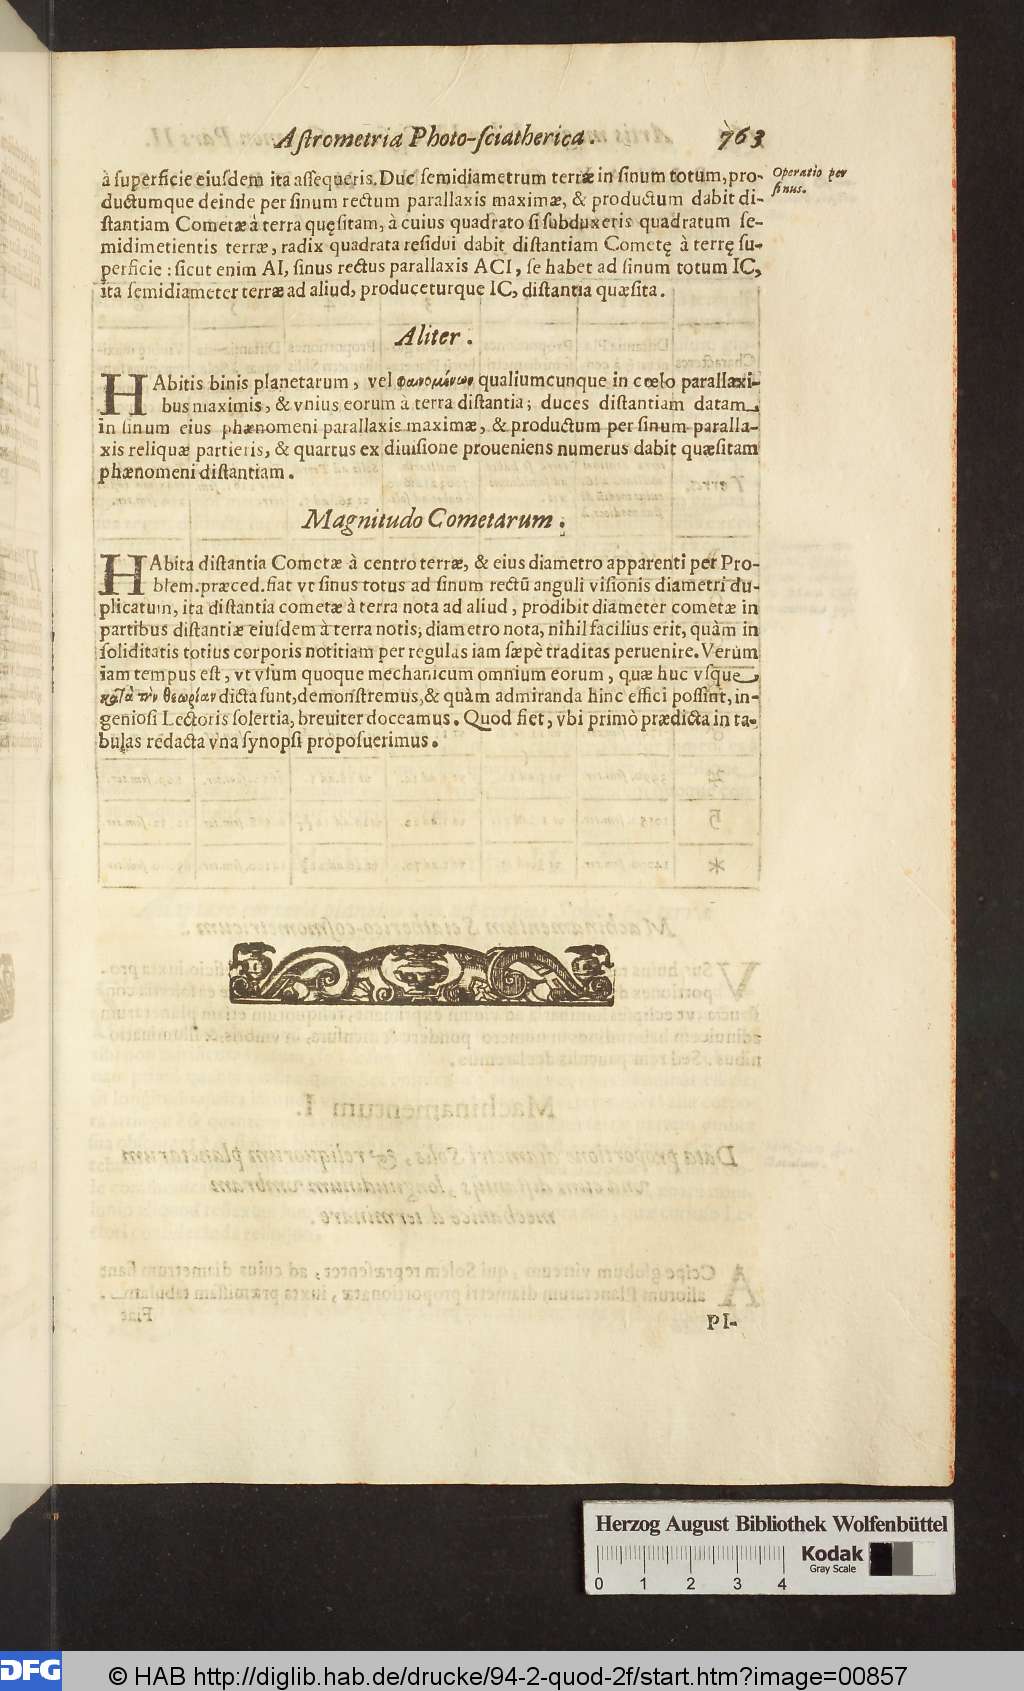 Astrometria Photo-sciatherica. 763
à superficie eiusdem ita assequeris. Duc semidiametrum terræ in sinum totum, pro-
ductumque deinde per sinum rectum parallaxis maximæ, & productum dabit di-
stantiam Cometæ à terra quęsitam, à cuius quadrato si subduxeris quadratum se-
midimetientis terræ, radix quadrata residui dabit distantiam Cometę à terrę su-
perficie: sicut enim AI, sinus rectus parallaxis ACI, se habet ad sinum totum IC,
ita semidiameter terræ ad aliud, produceturque IC, distantia quæsita.
Operatio per
sinus.
Aliter.
HAbitis binis planetarum, vel φαινομένων qualiumcunque in cœlo parallaxi-
bus maximis, & vnius eorum à terra distantia; duces distantiam datam
in sinum eius phænomeni parallaxis maximæ, & productum per sinum paralla-
xis reliquæ partieris, & quartus ex diuisione proueniens numerus dabit quæsitam
phænomeni distantiam.
Magnitudo Cometarum.
HAbita distantia Cometæ à centro terræ, & eius diametro apparenti per Pro-
blem. præced. fiat vt sinus totus ad sinum rectū anguli visionis diametri du-
plicatum, ita distantia cometæ à terra nota ad aliud, prodibit diameter cometæ in
partibus distantiæ eiusdem à terra notis; diametro nota, nihil facilius erit, quàm in
soliditatis totius corporis notitiam per regulas iam sæpè traditas peruenire. Verùm
iam tempus est, vt vsum quoque mechanicum omnium eorum, quæ huc vsque
κατὰ τὴν θεωρίαν dicta sunt, demonstremus, & quàm admiranda hinc effici possint, in-
geniosi Lectoris solertia, breuiter doceamus. Quod fiet, vbi primò prædicta in ta-
bulas redacta vna synopsi proposuerimus.
PI-
Herzog August Bibliothek Wolfenbüttel
Kodak
Gray Scale
0 1 2 3 4
DFG © HAB http://diglib.hab.de/drucke/94-2-quod-2f/start.htm?image=00857